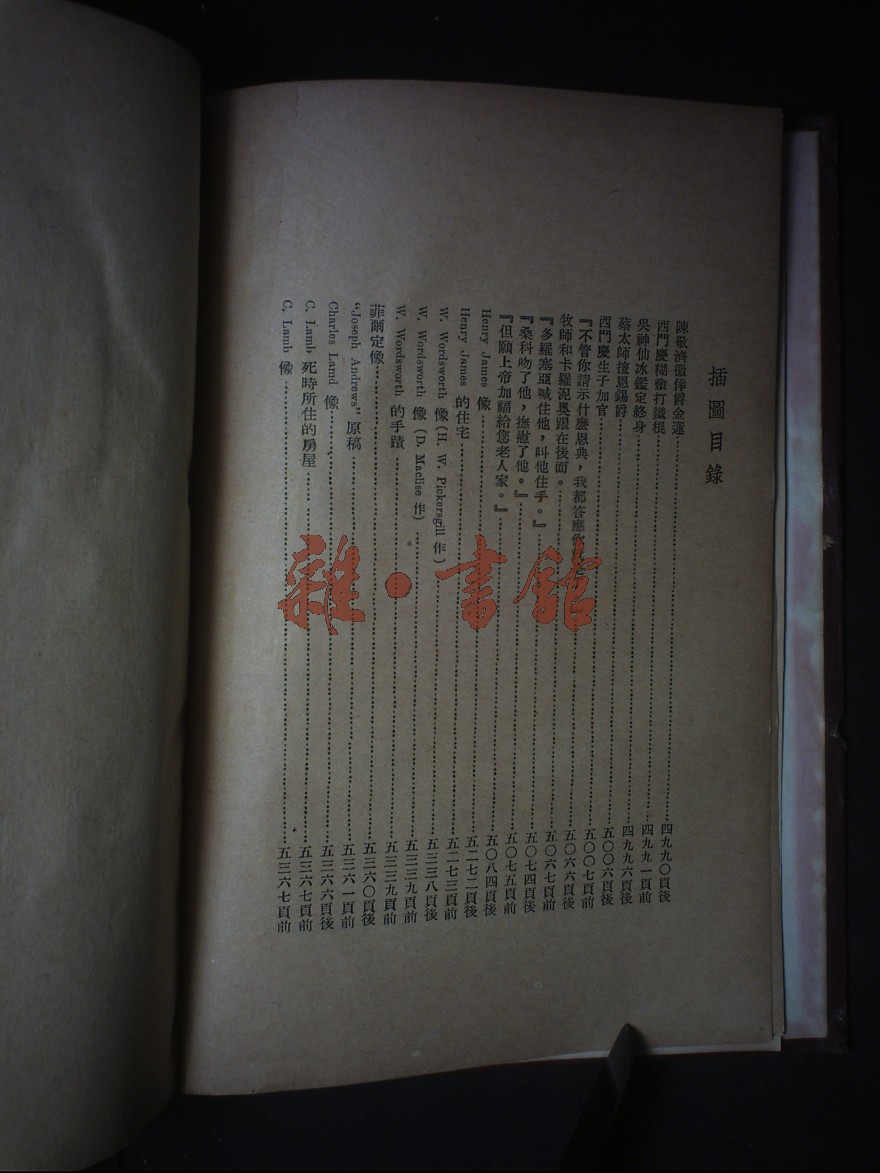 插圖目錄
陳敬濟徼倖金蓮……四九九〇頁後
西門慶糊塗打鐵棍……四九九一頁前
吳神仙冰鑑定終身……四九九六頁後
蔡太師擅恩錫爵……五〇〇六頁後
西門慶生子加官……五〇〇七頁前
『不管你請示什麼恩典，我都答應你……五〇六六頁後
牧師和卡羅泥奧跟在後面。……五〇六七頁前
『多羅塞亞喊住他，叫他住手。』……五〇七四頁後
『桑科吻了他，撫慰了他。』……五〇七五頁前
『但願上帝加福給您老人家。』……五〇八四頁後
Henry James 像……五二七二頁後
Henry James 的住宅……五二七三頁前
W. Wordsworth 像（H. W. Pickersgill 作）……五三三八頁後
W. Wordsworth 像（D. Maclise 作）……五三三九頁前
W. Wordsworth 的手蹟……五三三九頁前
菲爾定像……五三六〇頁後
“Joseph Andrews” 原稿……五三六一頁前
Charles Lamd 像……五三六六頁後
C. Lamb 死時所住的房屋……五三六七頁前
C. Lamb 像……五三六七頁前
雜·書館